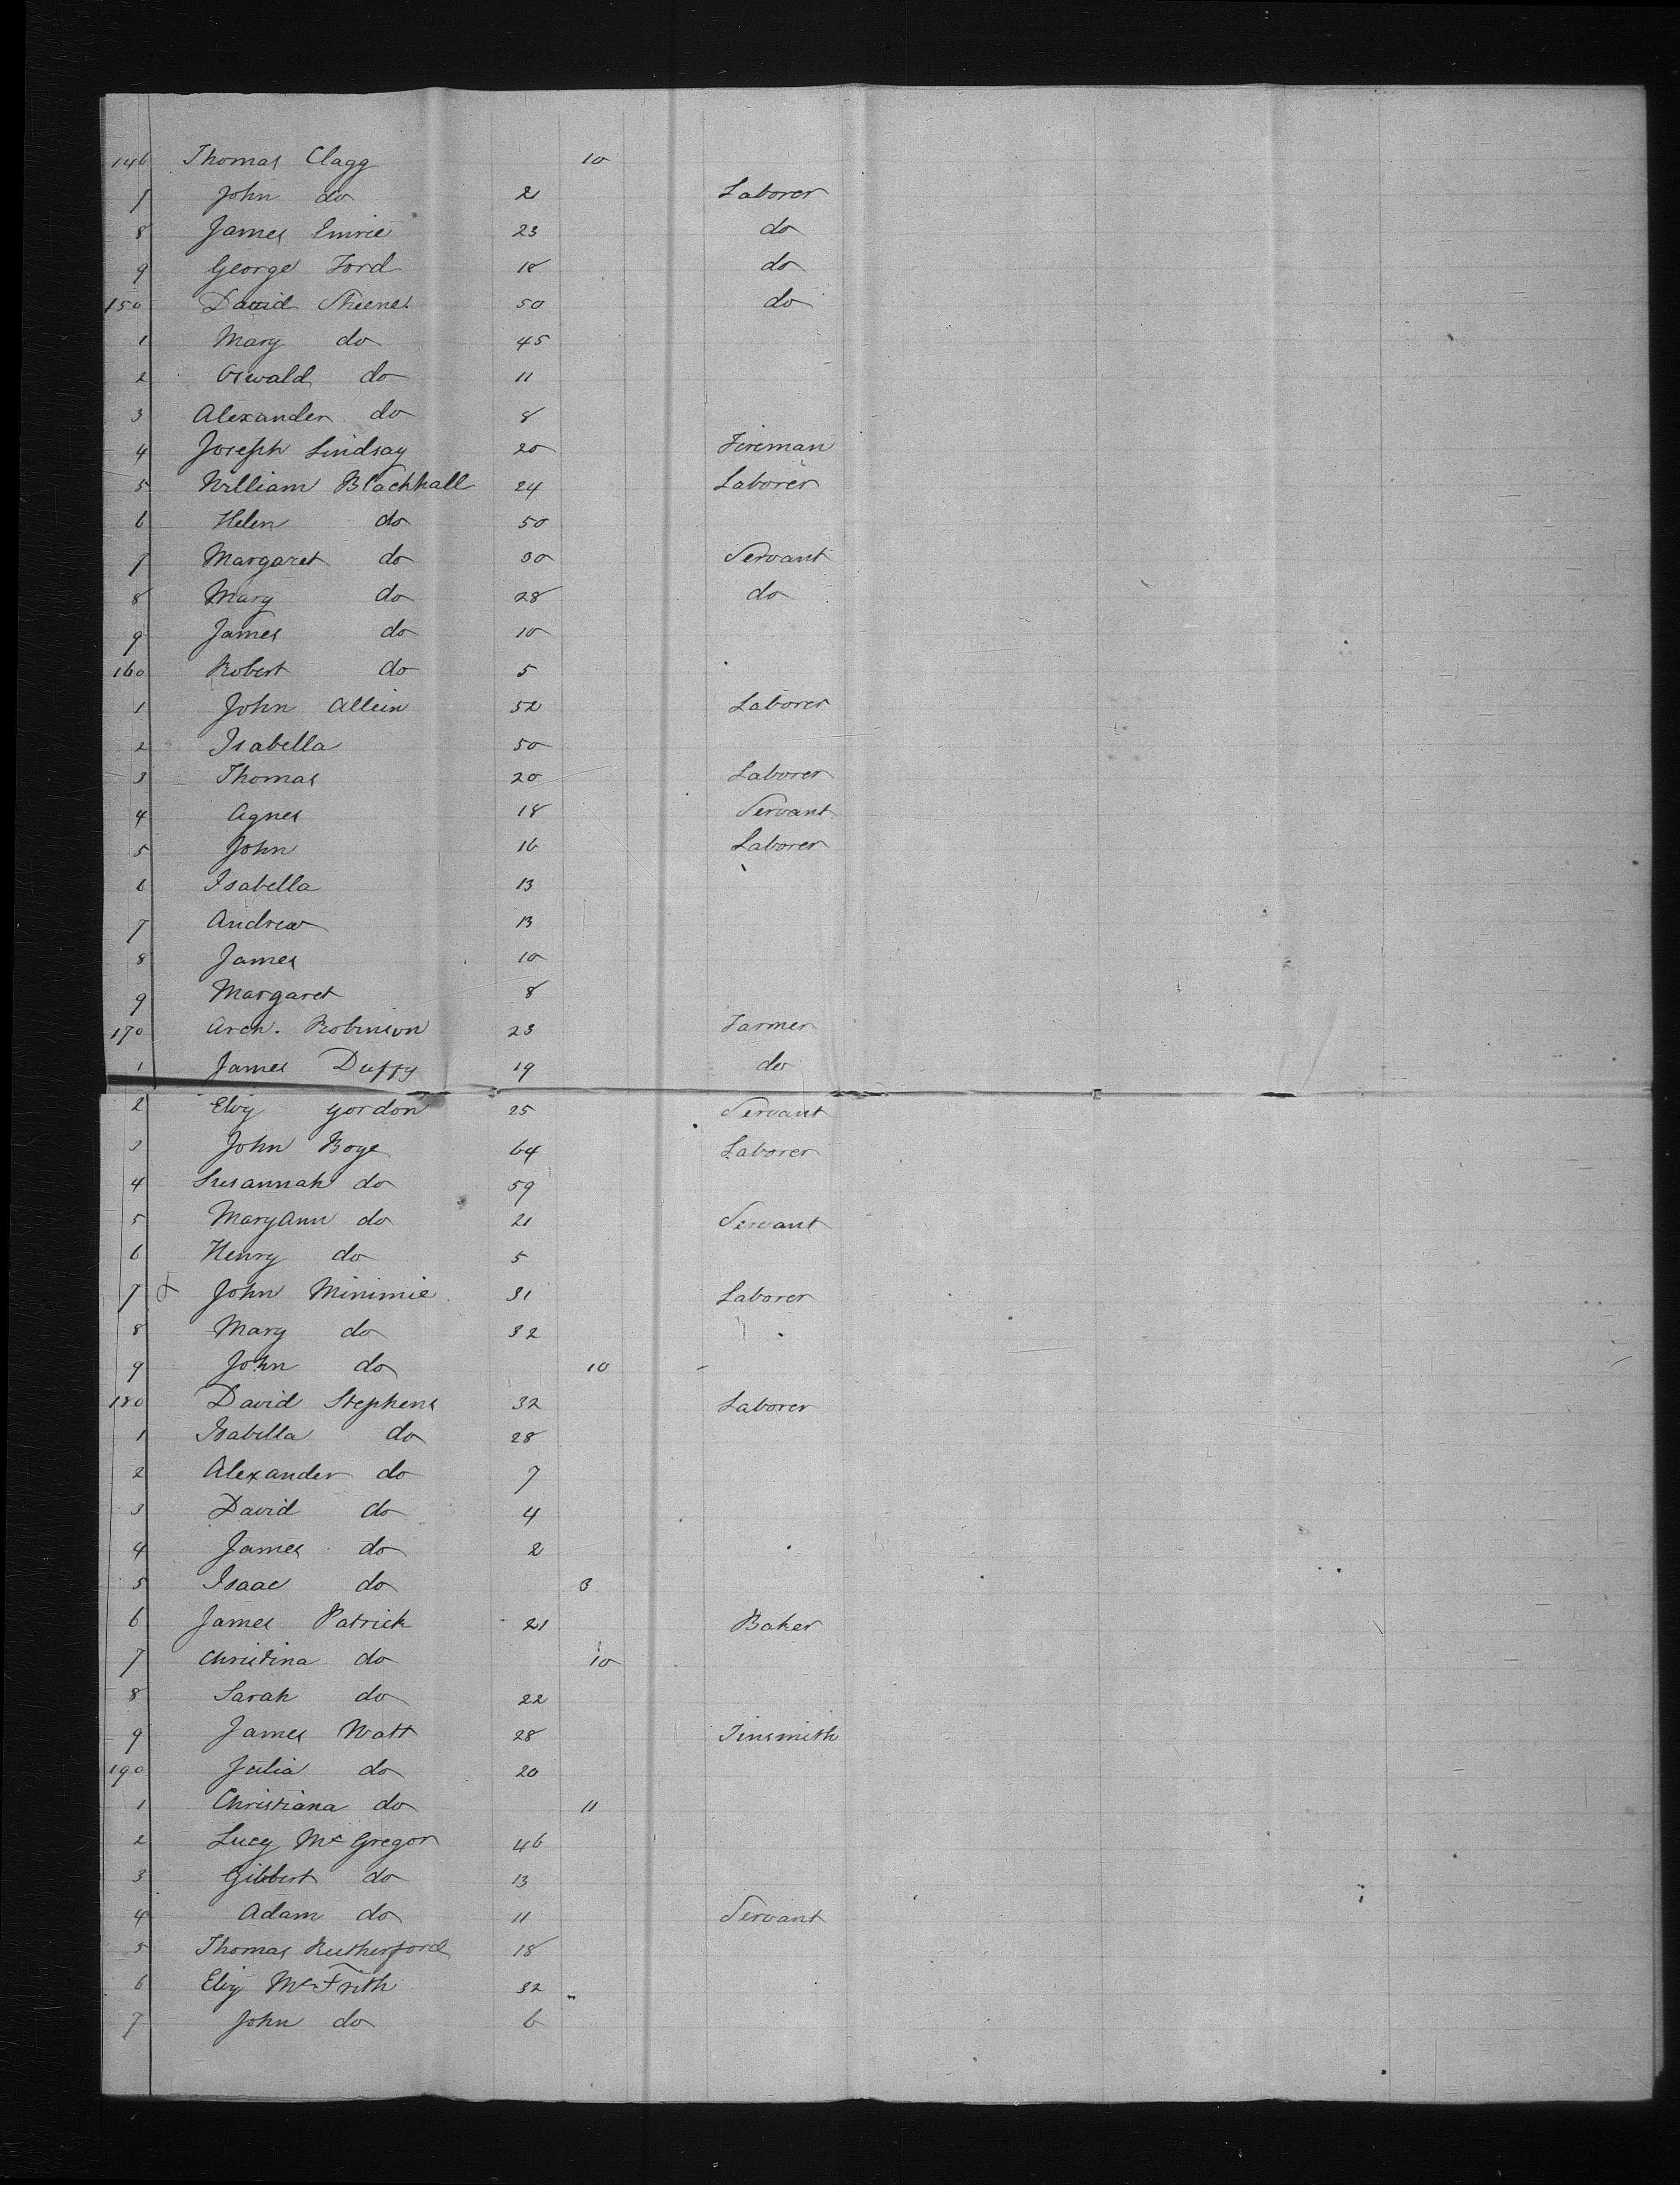 146 Thomas Clagg 10
7 John do 21 Laborer
8 James Emrie 23 do
9 George Ford 18 do
150 David Skene 50 do
1 Mary do 45
2 Oswald do 11
3 Alexander do 8
4 Joseph Lindsay 20 Fireman
5 William Blackhall 24 Laborer
6 Helen do 50
7 Margaret do 30 Servant
8 Mary do 28 do
9 James do 10
160 Robert do 5
1 John Allein 52 Laborer
2 Isabella 50
3 Thomas 20 Laborer
4 Agnes 18 Servant
5 John 16 Laborer
6 Isabella 13
7 Andrew 13
8 James 10
9 Margaret 8
170 Arch. Robinson 23 Farmer
1 James Duffy 19 do
2 Eliz Gordon 25 Servant
3 John Boye 64 Laborer
4 Susannah do 59
5 MaryAnn do 21 Servant
6 Henry do 5
7 John Minimie 31 Laborer
8 Mary do 32
9 John do 10
180 David Stephens 32 Laborer
1 Isabella do 28
2 Alexander do 7
3 David do 4
4 James do 2
5 Isaac do 3
6 James Patrick 21 Baker
7 Christina do 10
8 Sarah do 22
9 James Watt 28 Tinsmith
190 Julia do 20
1 Christiana do 11
2 Lucy McGregor 46
3 Gibbert do 13
4 Adam do 11 Servant
5 Thomas Rutherford 18
6 Eliz McFrith 32
7 John do 6